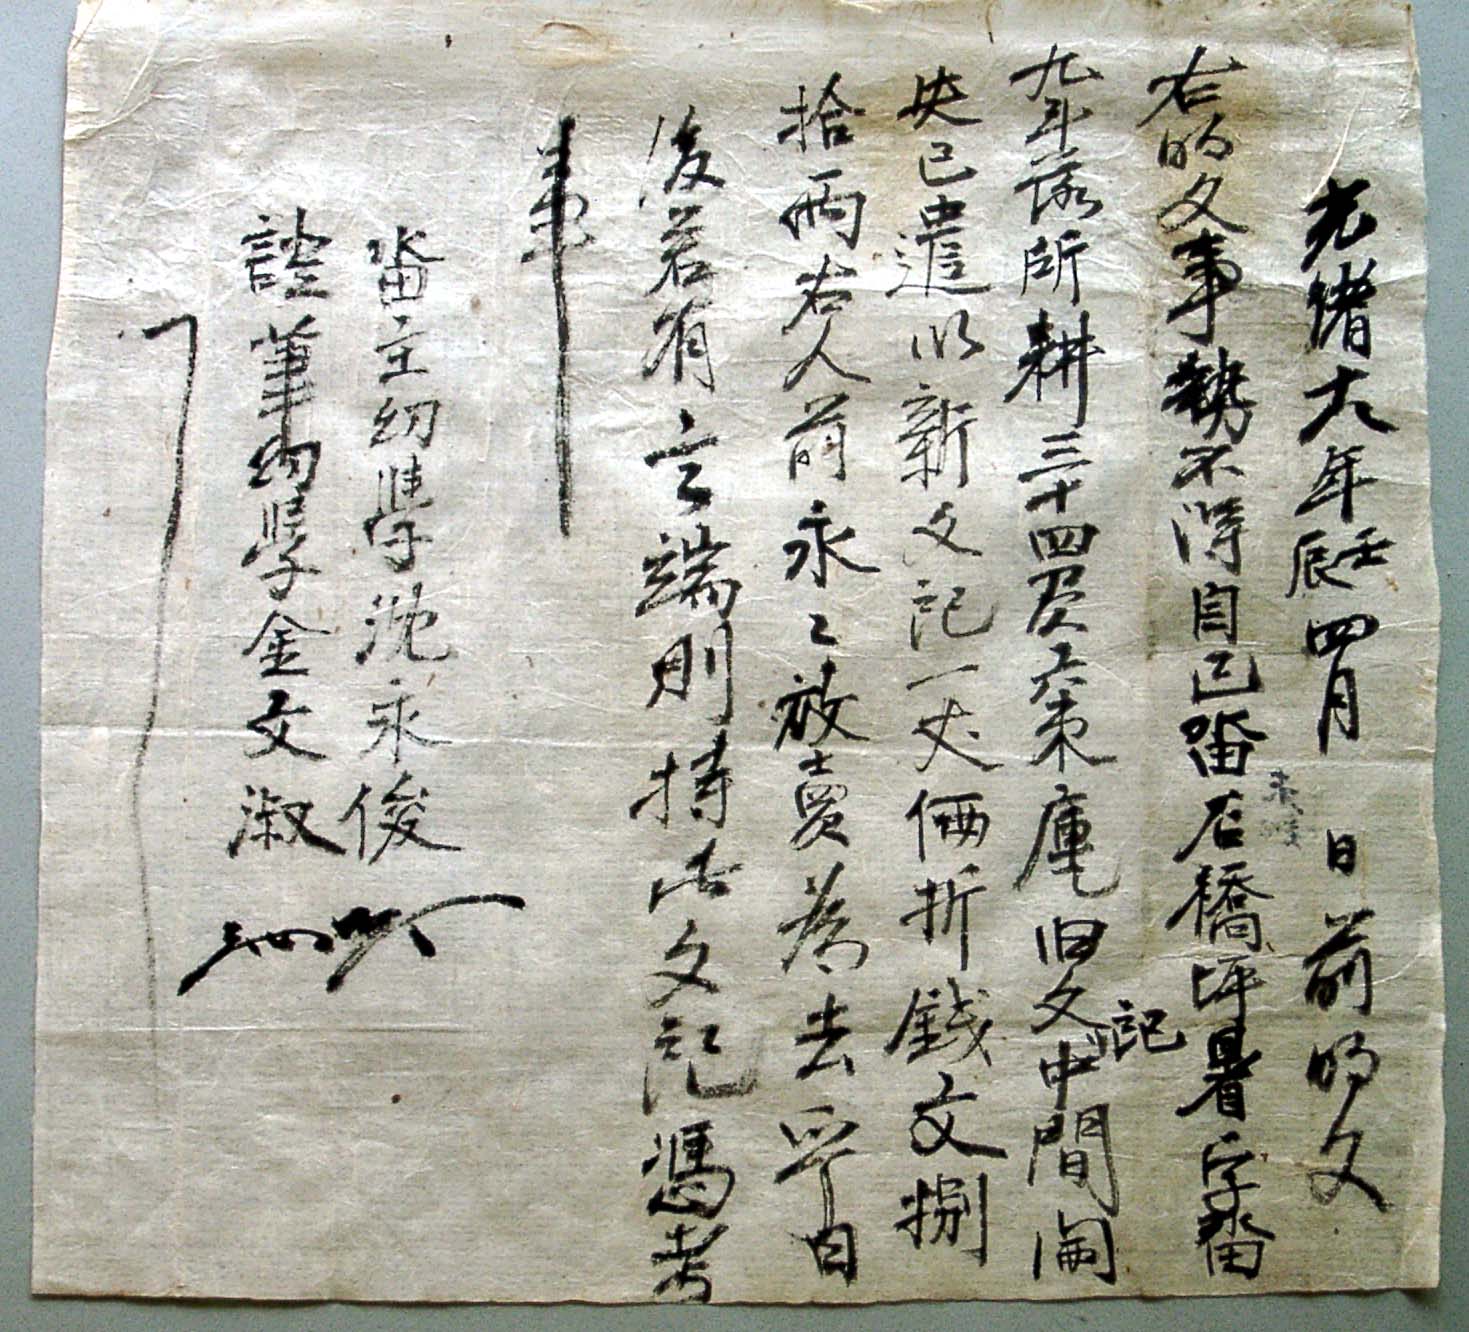 光緒十八年壬辰四月 日 前明文
右明文事勢不得自己畓石橋坪暑字畓
九斗落所耕三十四負六束庫旧文記中間閪
失已遣以新文記一丈価折錢文捌
拾両右人前永々放賣為去乎日
後若有言端則持此文記憑考
事
畓主幼學沈永俊
證筆幼學金文淑